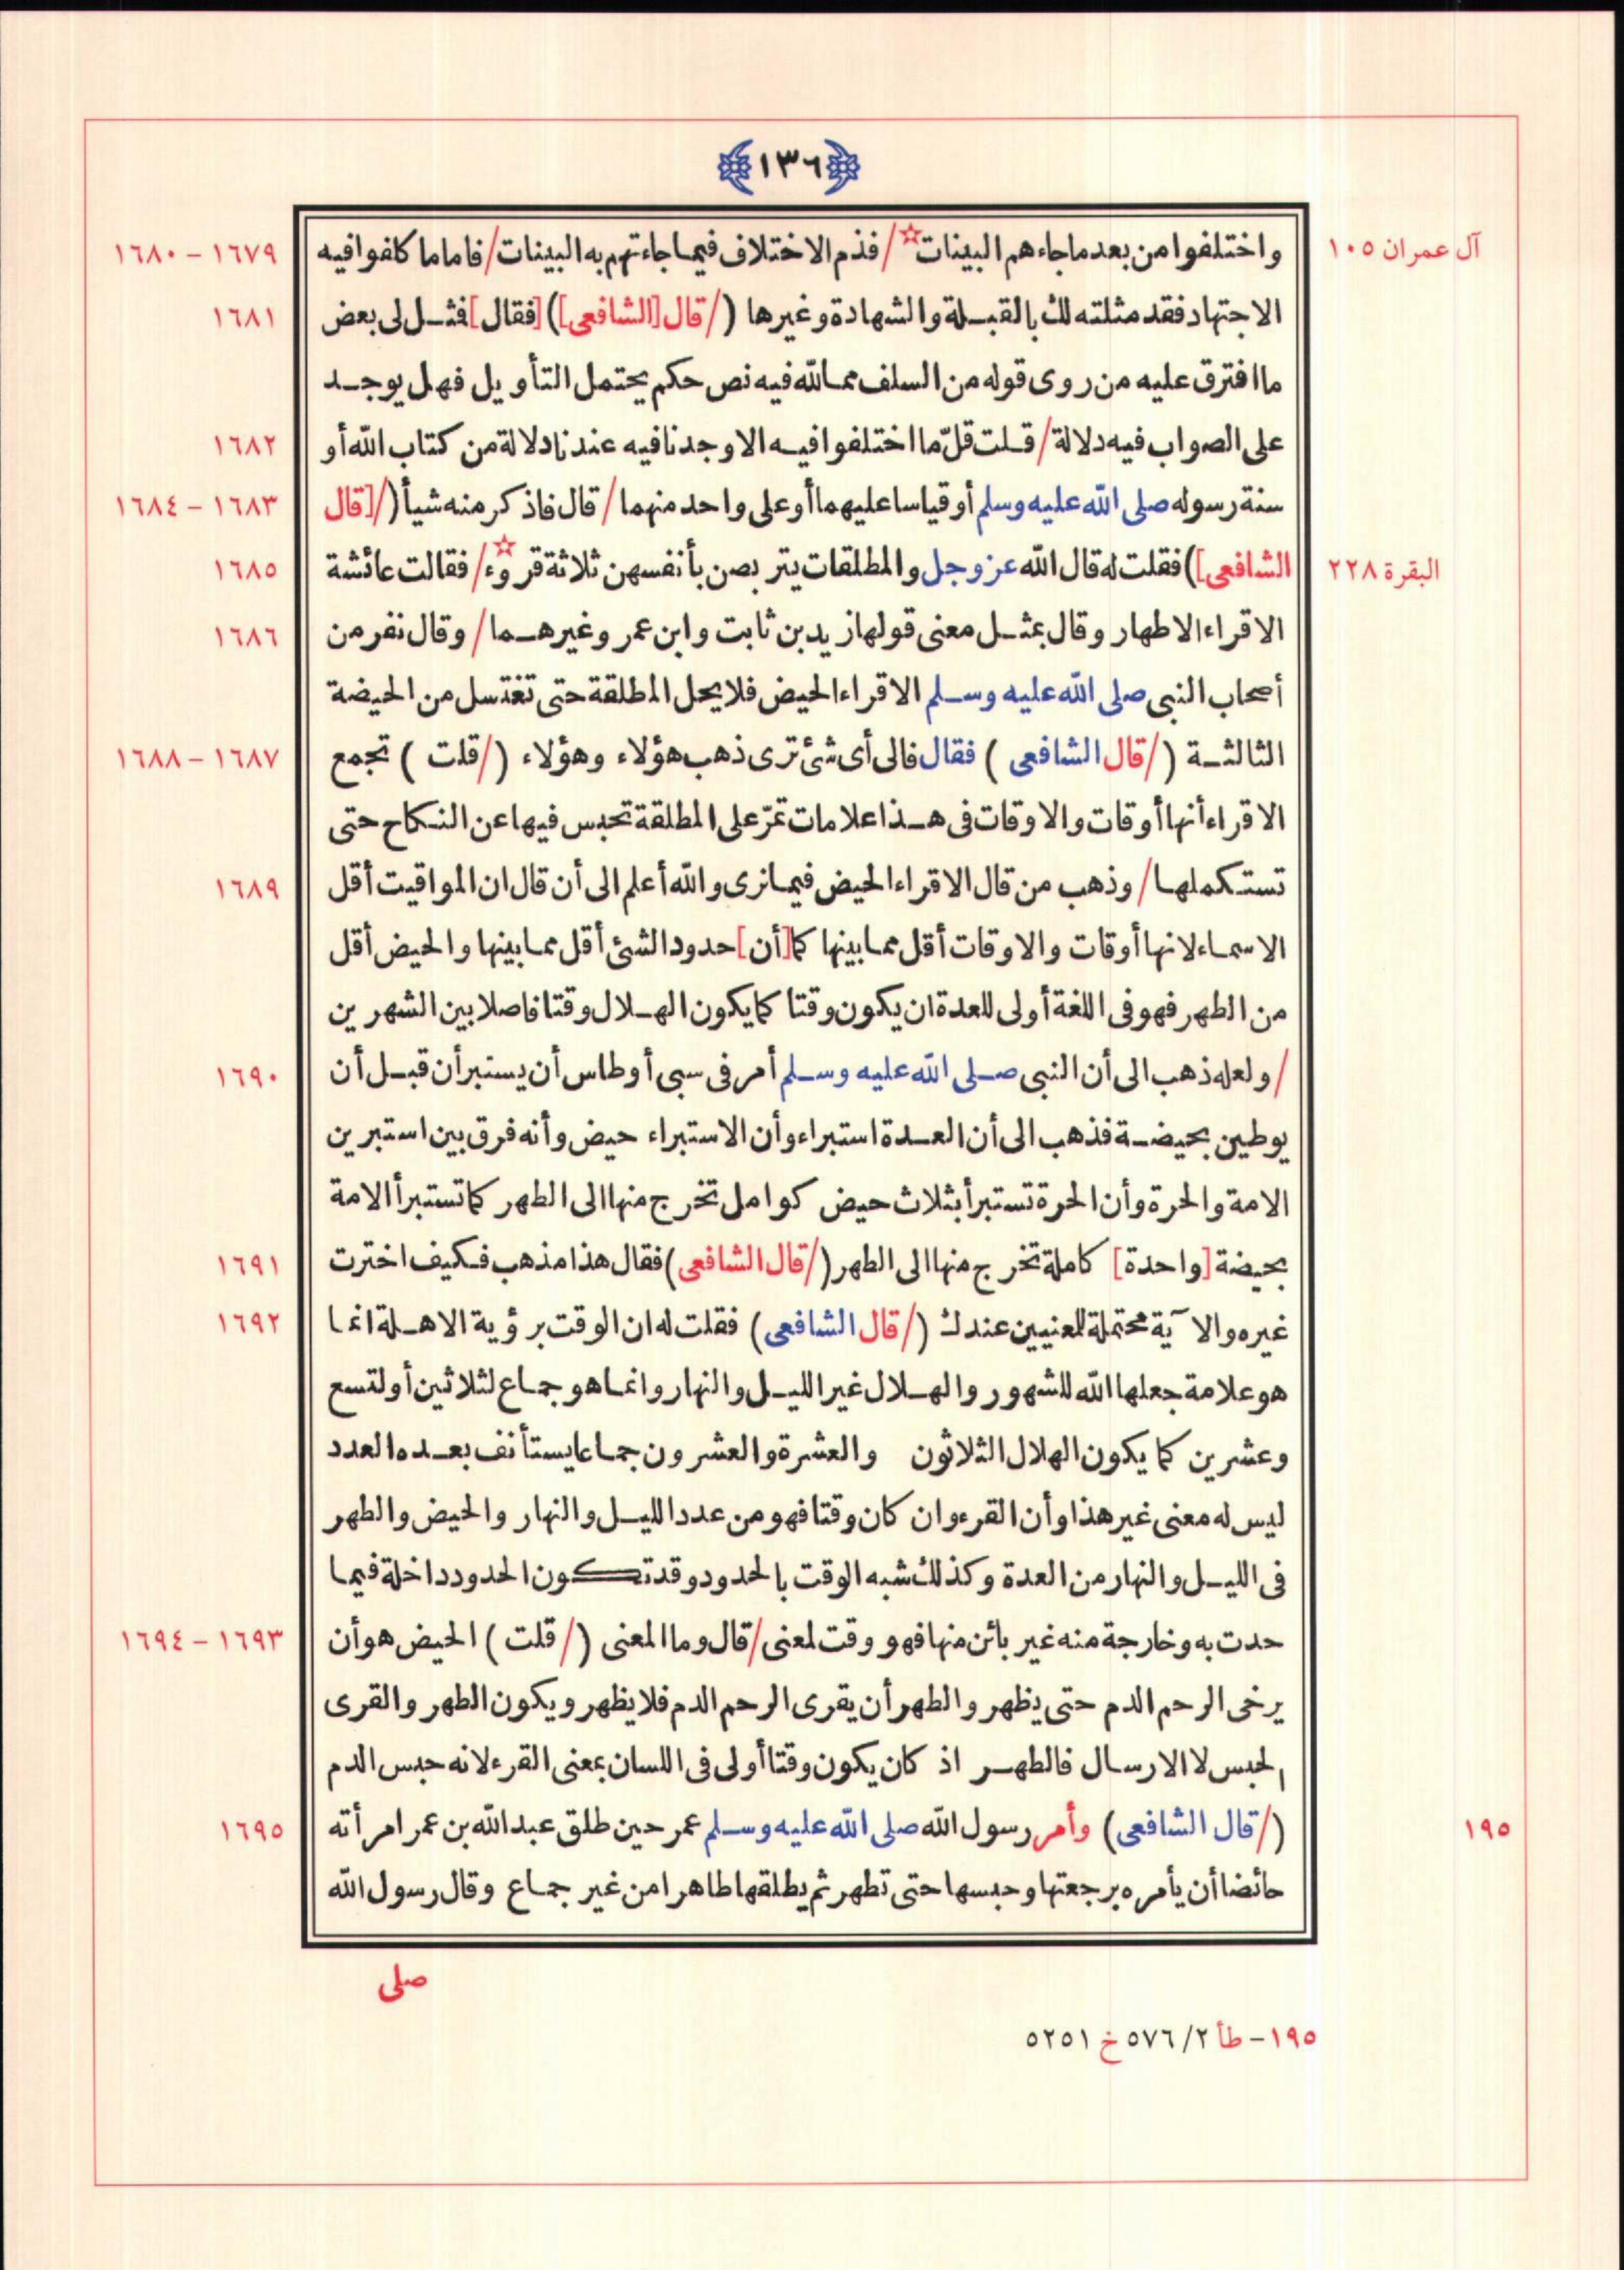 ﴿١٣٦﴾
آل عمران ١٠٥
واختلفوا من بعد ما جاءهم البينات☆/فذم الاختلاف فيما جاءتهم به البينات/فاما ما كلفوا فيه
١٦٧٩ – ١٦٨٠
الاجتهاد فقد مثلته لك بالقبلة والشهادة وغيرها (/قال [الشافعى]) [فقال] فثل لى بعض
١٦٨١
ما افترق عليه من روى قوله من السلف مما لله فيه نص حكم يحتمل التأويل فهل يوجد
على الصواب فيه دلالة/قلت قلّ ما اختلفوا فيه الا وجدنا فيه عندنا دلالة من كتاب الله أو
١٦٨٢
سنة رسوله صلى الله عليه وسلم أو قياسا عليهما أو على واحد منهما/قال فاذكر منه شيأ (/[قال
١٦٨٣ – ١٦٨٤
البقرة ٢٢٨
الشافعى]) فقلت له قال الله عز وجل والمطلقات يتربصن بأنفسهن ثلاثة قروء☆/فقالت عائشة
١٦٨٥
الاقراء الاطهار وقال بمثل معنى قولها زيد بن ثابت وابن عمر وغيرهما/وقال نفر من
١٦٨٦
أصحاب النبى صلى الله عليه وسلم الاقراء الحيض فلا يحل المطلقة حتى تغتسل من الحيضة
الثالثة (/قال الشافعى) فقال فالى أى شئ ترى ذهب هؤلاء وهؤلاء (/قلت) تجمع
١٦٨٧ – ١٦٨٨
الاقراء أنها أوقات والاوقات فى هذا علامات تمرّ على المطلقة تحبس فيها عن النكاح حتى
تستكملها/وذهب من قال الاقراء الحيض فيما نرى والله أعلم الى أن قال ان المواقيت أقل
١٦٨٩
الاسماء لانها أوقات والاوقات أقل مما بينها كما [أن] حدود الشئ أقل مما بينها والحيض أقل
من الطهر فهو فى اللغة أولى للعدة ان يكون وقتا كما يكون الهلال وقتا فاصلا بين الشهرين
/ولعله ذهب الى أن النبى صلى الله عليه وسلم أمر فى سبى أوطاس أن يستبرأن قبل أن
١٦٩٠
يوطين بحيضة فذهب الى أن العدة استبراء وأن الاستبراء حيض وأنه فرق بين استبرين
الامة والحرة وأن الحرة تستبرأ بثلاث حيض كوامل تخرج منها الى الطهر كما تستبرأ الامة
بحيضة [واحدة] كاملة تخرج منها الى الطهر (/قال الشافعى) فقال هذا مذهب فكيف اخترت
١٦٩١
غيره والآية محتملة للعنيين عندك (/قال الشافعى) فقلت له ان الوقت برؤية الاهلة انما
١٦٩٢
هو علامة جعلها الله للشهور والهلال غير الليل والنهار وانما هو جماع لثلاثين أو لتسع
وعشرين كما يكون الهلال الثلاثون والعشرة والعشرون جماعا يستأنف بعده العدد
ليس له معنى غير هذا وأن القرء وان كان وقتا فهو من عدد الليل والنهار والحيض والطهر
فى الليل والنهار من العدة وكذلك شبه الوقت بالحدود وقد تكون الحدود داخلة فيما
حدت به وخارجة منه غير بائن منها فهو وقت لمعنى/قال وما المعنى (/قلت) الحيض هو أن
١٦٩٣ – ١٦٩٤
يرخى الرحم الدم حتى يظهر والطهر أن يقرى الرحم الدم فلا يظهر ويكون الطهر والقرى
الحبس لا الارسال فالطهر اذ كان يكون وقتا أولى فى اللسان بمعنى القرء لانه حبس الدم
١٩٥
(/قال الشافعى) وأمر رسول الله صلى الله عليه وسلم عمر حين طلق عبد الله بن عمر امرأته
١٦٩٥
حائضا أن يأمره برجعتها وحبسها حتى تطهر ثم يطلقها طاهرا من غير جماع وقال رسول الله
صلى
١٩٥ – طأ ٢/٥٧٦ خ ٥٢٥١